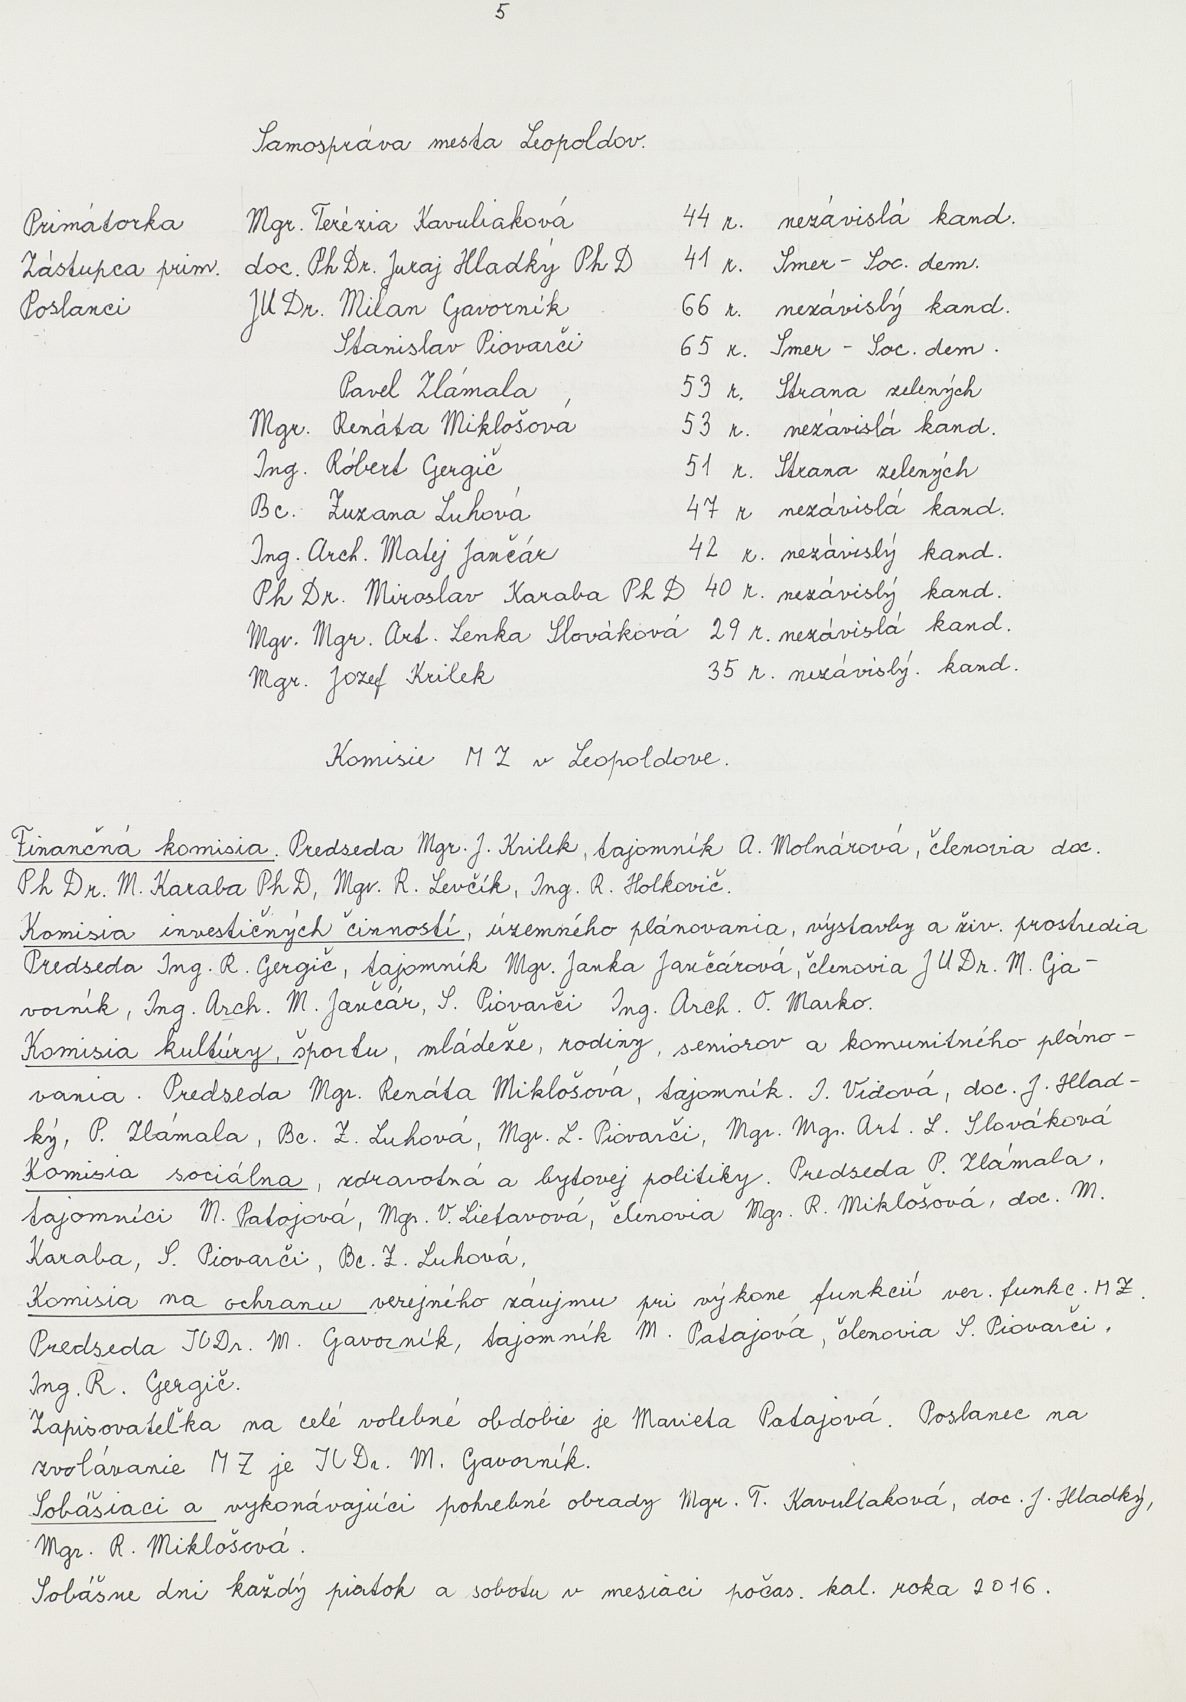 5
Samospráva mesta Leopoldov.
Primátorka Mgr. Terézia Kavuliaková 44 r. nezávislá kand.
Zástupca prim. doc. PhDr. Juraj Hladký PhD 41 r. Smer - Soc. dem.
Poslanci JUDr. Milan Gavorník 66 r. nezávislý kand.
Stanislav Piovarči 65 r. Smer - Soc. dem.
Pavel Zlámala 53 r. Strana zelených
Mgr. Renáta Miklošová 53 r. nezávislá kand.
Ing. Róbert Gergič 51 r. Strana zelených
Bc. Zuzana Luhová 47 r nezávislá kand.
Ing. Arch. Matej Jančár 42 r. nezávislý kand.
PhDr. Miroslav Karaba PhD 40 r. nezávislý kand.
Mgr. Mgr. Art. Lenka Slováková 29 r. nezávislá kand.
Mgr. Jozef Krilek 35 r. nezávislý. kand.
Komisie MZ v Leopoldove.
Finančná komisia. Predseda Mgr. J. Krilek, tajomník A. Molnárová, členovia doc.
PhDr. M. Karaba PhD, Mgr. R. Levčík, Ing. R. Holkovič.
Komisia investičných činností, územného plánovania, výstavby a živ. prostredia
Predseda Ing. R. Gergič, tajomník Mgr. Janka Jančárová, členovia JUDr. M. Ga-
vorník, Ing. Arch. M. Jančár, S. Piovarči Ing. Arch. O. Marko.
Komisia kultúry, športu, mládeže, rodiny, seniorov a komunitného pláno-
vania. Predseda Mgr. Renáta Miklošová, tajomník. I. Vidová, doc. J. Hlad-
ký, P. Zlámala, Bc. Z. Luhová, Mgr. L. Piovarči, Mgr. Mgr. Art. L. Slováková
Komisia sociálna, zdravotná a bytovej politiky. Predseda P. Zlámala,
tajomníci M. Patajová, Mgr. V. Lietavová, členovia Mgr. R. Miklošová, doc. M.
Karaba, S. Piovarči, Bc. Z. Luhová,
Komisia na ochranu verejného záujmu pri výkone funkcií ver. funkc. MZ.
Predseda JUDr. M. Gavorník, tajomník M. Patajová, členovia S. Piovarči,
Ing. R. Gergič.
Zapisovateľka na celé volebné obdobie je Marieta Patajová. Poslanec na
zvolávanie MZ je JUDr. M. Gavorník.
Sobášiaci a vykonávajúci pohrebné obrady Mgr. T. Kavuliaková, doc. J. Hladký,
Mgr. R. Miklošová.
Sobášne dni každý piatok a sobotu v mesiaci počas. kal. roka 2016.